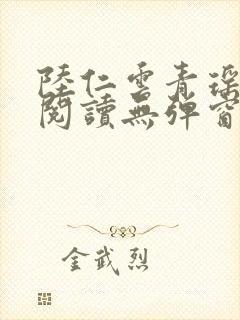 陸仁雲青瑶
閱讀無彈窗
金武烈